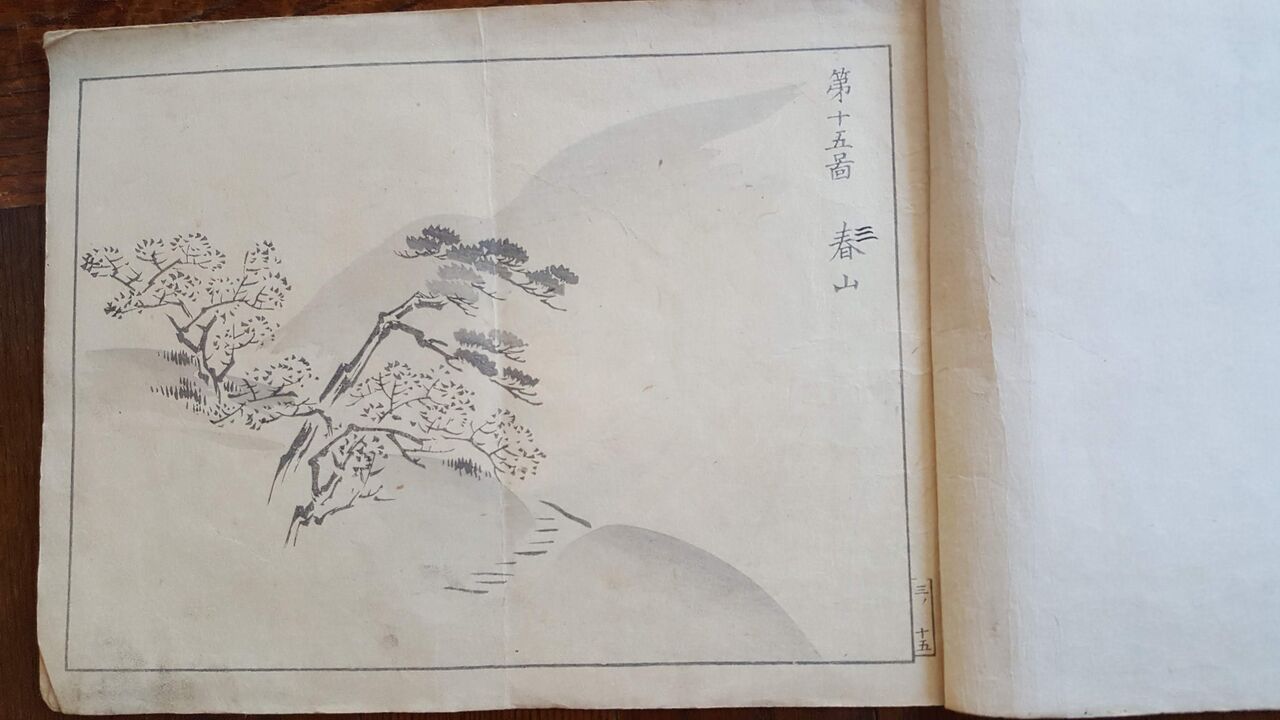 第十五圖 春山
三
三ノ十五